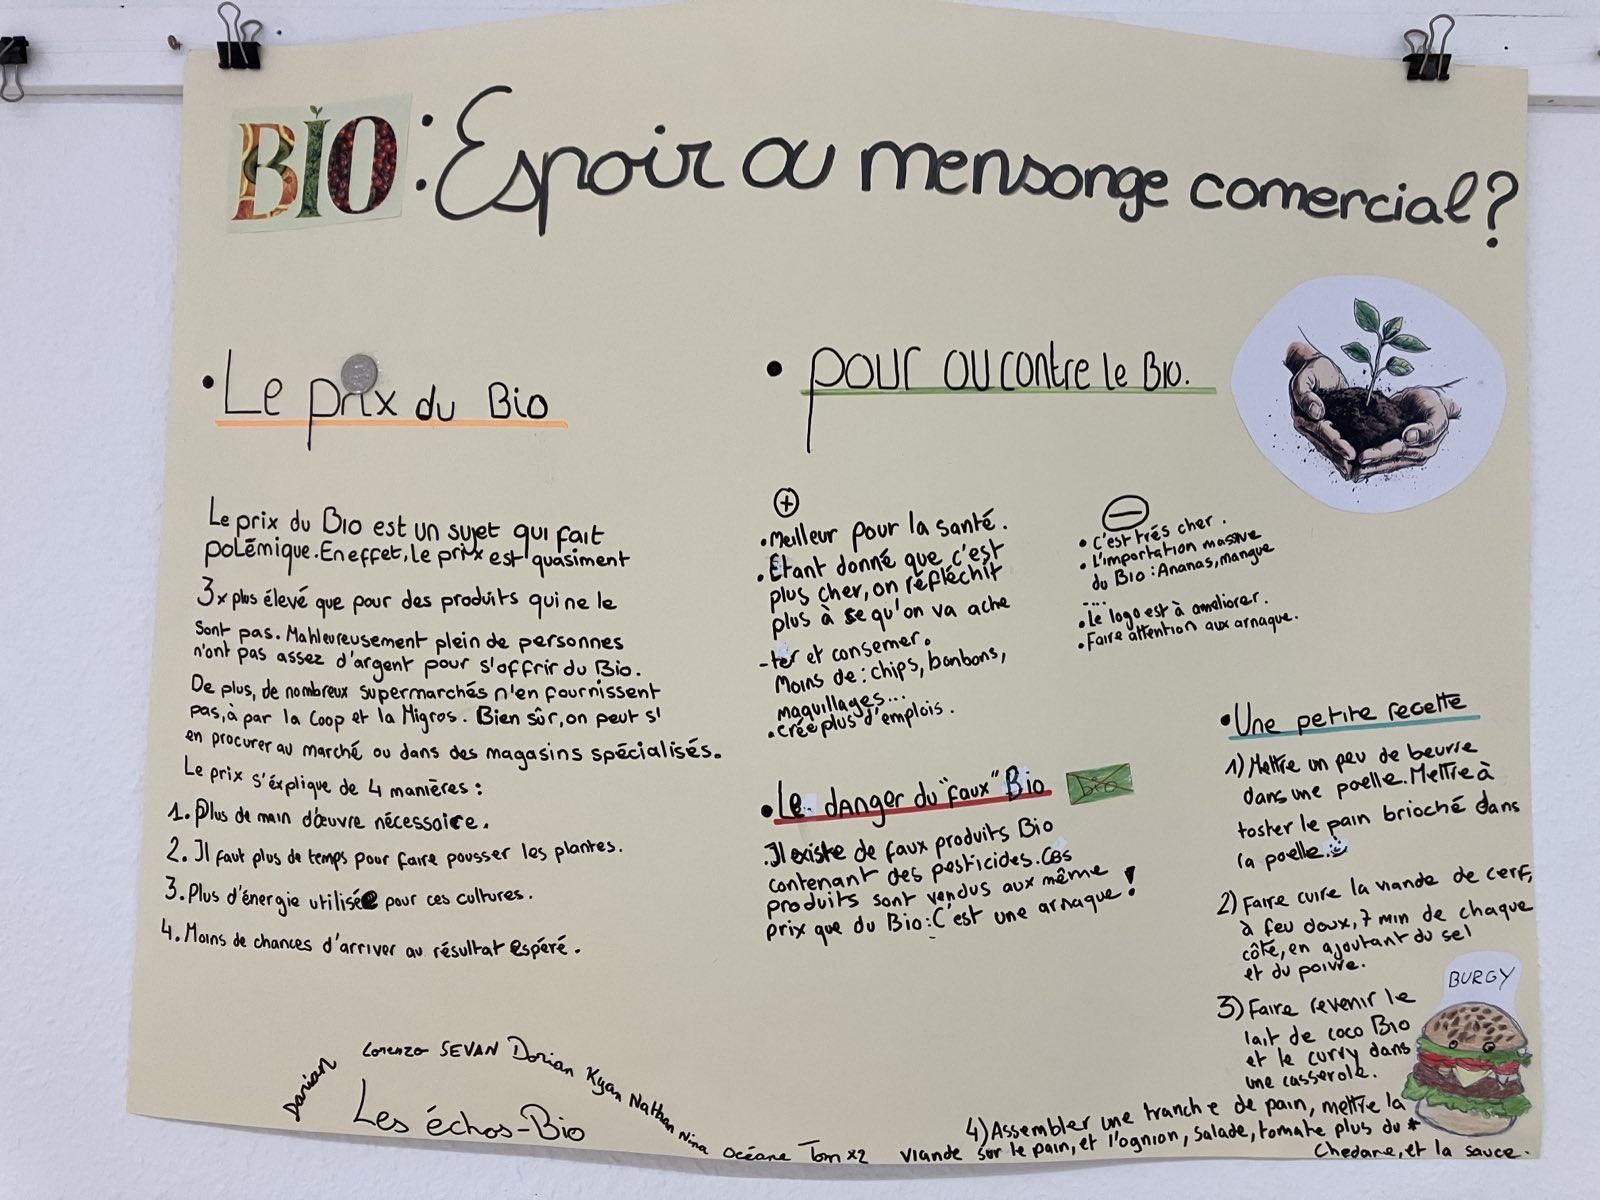 BIO : Espoir ou mensonge comercial ?
• Le prix du Bio
Le prix du Bio est un sujet qui fait
polémique. En effet, le prix est quasiment
3x plus élevé que pour des produits qui ne le
sont pas. Mahleureusement plein de personnes
n'ont pas assez d'argent pour s'offrir du Bio.
De plus, de nombreux supermarchés n'en fournissent
pas, à par la Coop et la Migros. Bien sûr, on peut s'
en procurer au marché ou dans des magasins spécialisés.
Le prix s'éxplique de 4 manières :
1. Plus de main d'œuvre nécessaire.
2. Il faut plus de temps pour faire pousser les plantes.
3. Plus d'énergie utilisée pour ces cultures.
4. Moins de chances d'arriver au résultat espéré.
• pour ou contre le Bio.
+
• Meilleur pour la santé.
• Etant donné que c'est
plus cher, on réfléchit
plus à se qu'on va ache
-ter et consemer.
Moins de : chips, bonbons,
maquillages...
• crée plus d'emplois.
-
• c'est trés cher.
• L'importation massive
du Bio : Ananas, mangue
...
• Le logo est à ameliorer.
• Faire attention aux arnaque.
• Le danger du "faux" Bio
bio
• Il existe de faux produits Bio
contenant des pesticides. Ces
produits sont vendus aux même
prix que du Bio : C'est une arnaque !
• Une petite recette
1) Mettre un peu de beurre
dans une poelle. Mettre à
toster le pain brioché dans
la poelle.
2) Faire cuire la viande de cerf,
à feu doux, 7 min de chaque
côté, en ajoutant du sel
et du poivre.
3) Faire revenir le
lait de coco Bio
et le curry dans
une casserole.
4) Assembler une tranche de pain, mettre la
viande sur le pain, et l'ognion, salade, tomate plus du *
Chedare, et la sauce.
BURGY
Danian Lorenzo SEVAN Dorian Kyan Nathan Nina Océane Tom x2
Les échos-Bio